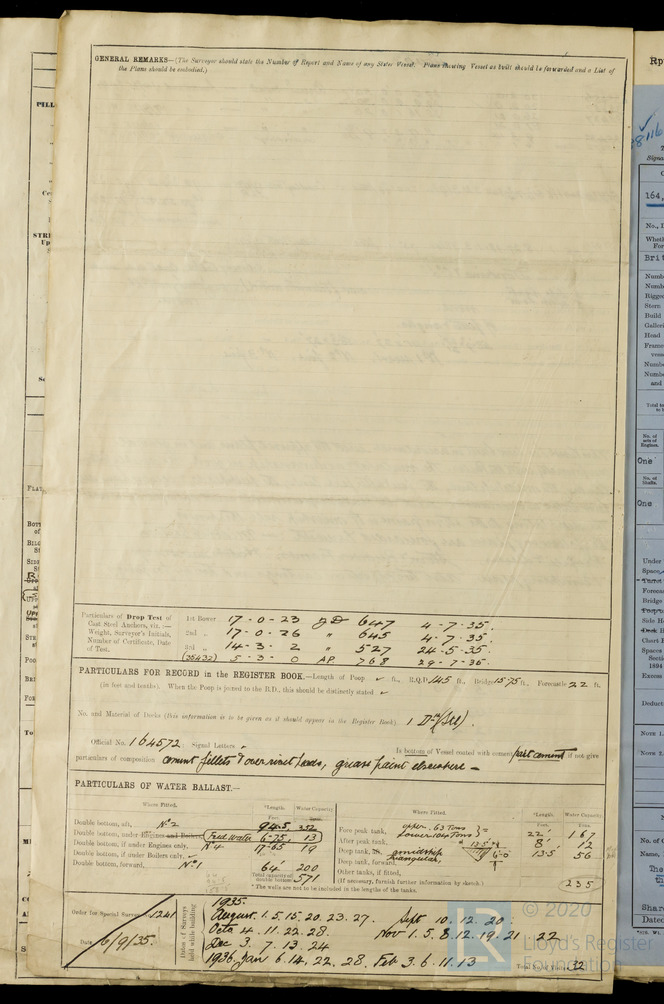 GENERAL REMARKS—(The Surveyor should state the Number of Report and Name of any Sister Vessel. Plans showing Vessel as built should be forwarded and a List of
the Plans should be embodied.)
Particulars of Drop Test of
Cast Steel Anchors, viz.:—
Weight, Surveyor's Initials,
Number of Certificate, Date
of Test.
1st Bower 17-0-23 647 4-7-35.
2nd " 17-0-26 " 645 4-7-35.
3rd " 14-3-2 " 527 24-5-35.
(35432) 5-3-0 AP. 768 29-7-35.
PARTICULARS FOR RECORD in the REGISTER BOOK.—Length of Poop ft., R.Q.D. 145 ft., Bridge 15.75 ft., Forecastle 22 ft.
(in feet and tenths). When the Poop is joined to the B.D., this should be distinctly stated
No. and Material of Decks (this information is to be given as it should appear in the Register Book) 1 Dk (Stl).
Official No. 164572 Signal Letters
Is bottom of Vessel coated with cement part cement if not give
particulars of composition cement fillets & over rivet heads, grease paint elsewhere -
PARTICULARS OF WATER BALLAST.—
Where Fitted. *Length. Water Capacity.
Double bottom, aft, No 2 94.5 332
Double bottom, under Engines and Boilers, Feed water 6.75 13
Double bottom, if under Engines only, No 4 17.65 19
Double bottom, if under Boilers only,
Double bottom, forward, No 1 64 200
Total capacity of double bottom 571
Where Fitted. *Length. Water Capacity.
Fore peak tank, upper 63 Tons
Lower 104 Tons } = 22' 167
After peak tank, 8' 12
Deep tank, amidship 13.5 56
triangular,
Deep tank, forward,
Other tanks, if fitted,
(If necessary, furnish further information by sketch.)
235
* The wells are not to be included in the lengths of the tanks.
Order for Special Survey No. 1241
Date 6/9/35.
Dates of Surveys held while building
1935.
August 1. 5. 15. 20. 23. 27. Sept 10. 12. 20.
Octr 4. 11. 22. 28. Nov 1. 5. 8. 12. 19. 21. 22
Dec 3. 7. 13. 24
1936. Jan 6. 14. 22. 28. Feb 3. 6. 11. 13
Total No. of Visits 32
© 2020
Lloyd's Register
Foundation